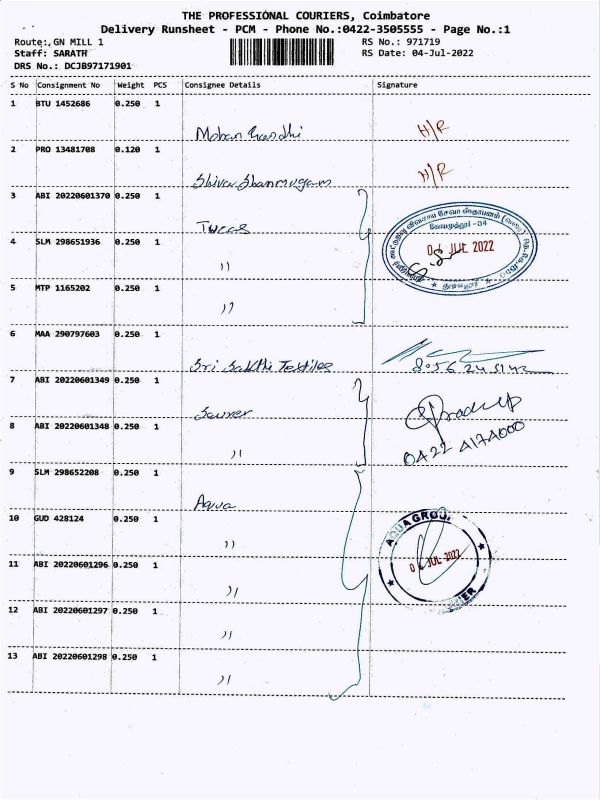 THE PROFESSIONAL COURIERS, Coimbatore
Delivery Runsheet - PCM - Phone No.:0422-3505555 - Page No.:1
Route: GN MILL 1 RS No.: 971719
Staff: SARATH RS Date: 04-Jul-2022
DRS No.: DCJB97171901
S No Consignment No Weight PCS Consignee Details Signature
1 BTU 1452686 0.250 1
Mohan Gandhi H/R
2 PRO 13481708 0.120 1
Shiva Shanmugam H/R
3 ABI 20220601370 0.250 1
Tucas
4 SLM 298651936 0.250 1
கோயமுத்தூர் -34
JUL 2022
))
5 MTP 1165202 0.250 1
))
6 MAA 290797603 0.250 1
Sri Sakthi Textiles
7 ABI 20220601349 0.250 1
Saurer
Pradeep
8 ABI 20220601348 0.250 1
))
9 SLM 298652208 0.250 1
Aqua
10 GUD 428124 0.250 1
AQUA GROUP
))
11 ABI 20220601296 0.250 1
JUL 2022
))
12 ABI 20220601297 0.250 1
))
13 ABI 20220601298 0.250 1
))